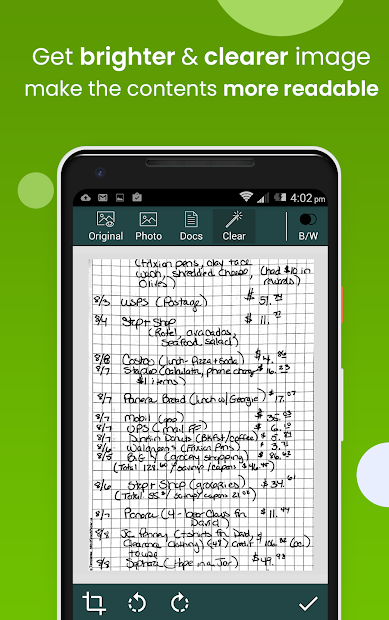 Get brighter & clearer image
make the contents more readable
4:02 pm
Original Photo Docs Clear B/W
(Frixion pens, clay face
wash, shredded cheese, (had $10 in
Olives) rewards)
8/3 USPS (Postage) $51.
8/4 Stop + Shop $11.
(Rotel, avocados,
seafood salad)
8/8 Costco (lunch - Pizza + Soda) $4.
8/7 Staples (Calculator, phone charger $16.
$1 items)
8/7 Panera Bread (lunch w/ Georgie) $17.07
8/7 Mobil (gas) $35.
8/7 UPS (mail FF) $6.
8/7 Dunkin Donuts (Bkfst/coffee) $5.
8/6 Walgreens (Frixion Pens) $3.
8/5 Big Y (grocery shopping) $86.
(Total 128. / savings/coupons $
8/6 Stop + Shop (groceries) $34.
(Total 55 / savings/coupons 21.
8/7 Panera (4-1 Clays fm $11.
David)
8/8 JC Penney (t-shirts fm Dad,
Clearance clothing) (48) credit 106.
8/8 Sephora (Hope in a Jar) $49.